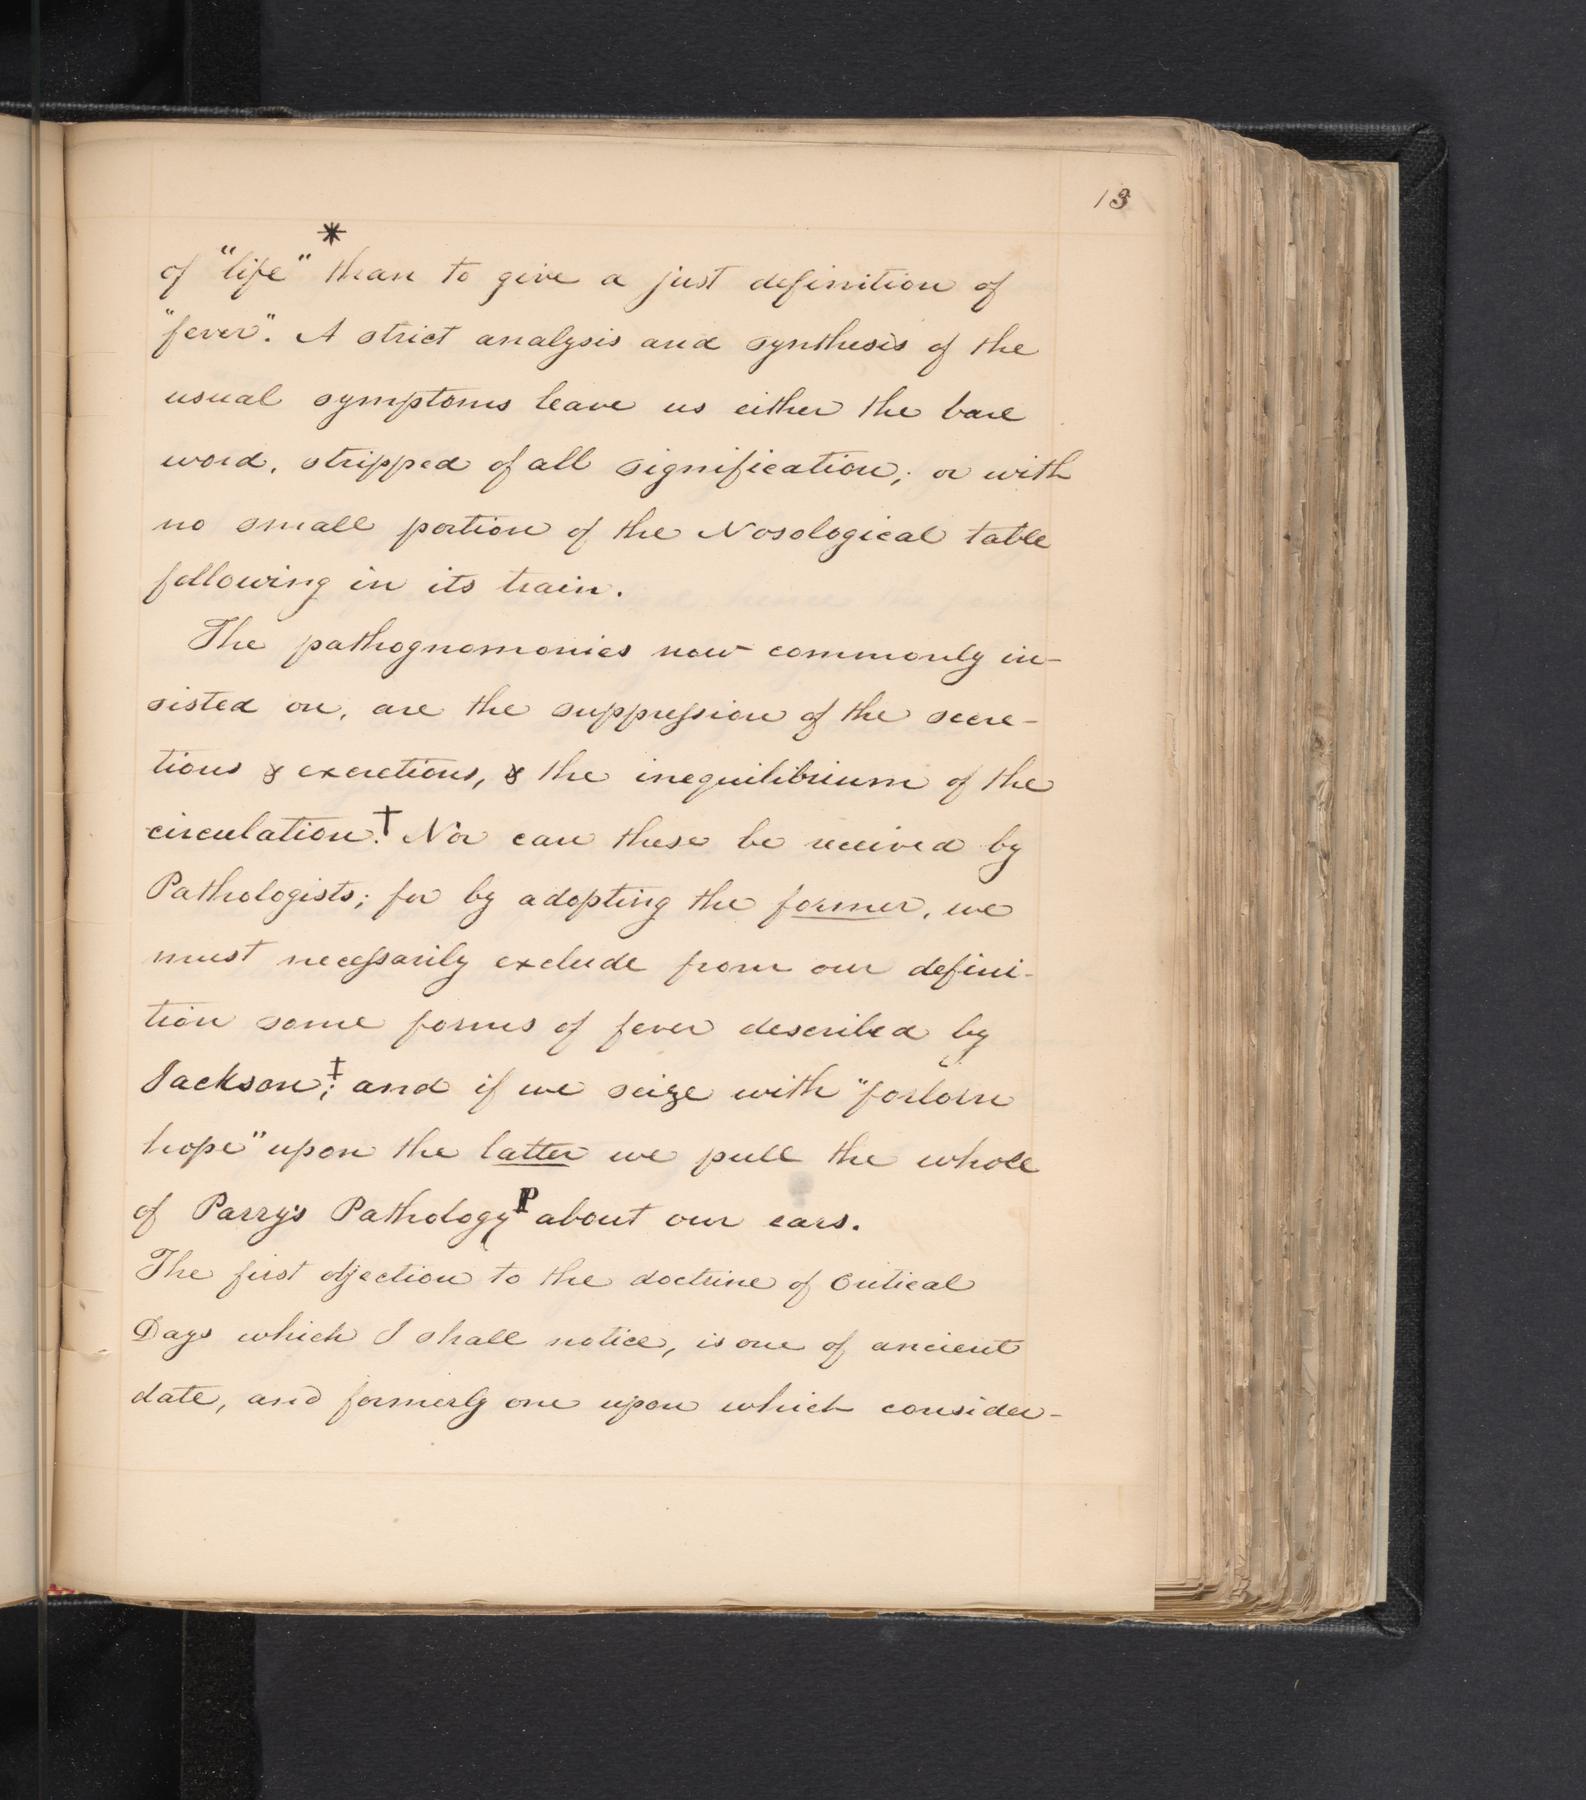 13
of "life"* than to give a just definition of
"fever". A strict analysis and synthesis of the
usual symptoms leave us either the bare
word, stripped of all signification; or with
no small portion of the Nosological table
following in its train.
The pathognomonics now commonly in-
sisted on, are the suppression of the secre-
tions & excretions, & the inequilibrium of the
circulation.† Nor can these be received by
Pathologists; for by adopting the former, we
must necessarily exclude from our defini-
tion some forms of fever described by
Jackson‡; and if we seize with "forlorn
hope" upon the latter we pull the whole
of Parry's Pathology P about our ears.
The first objection to the doctrine of Critical
Days which I shall notice, is one of ancient
date, and formerly one upon which consider-